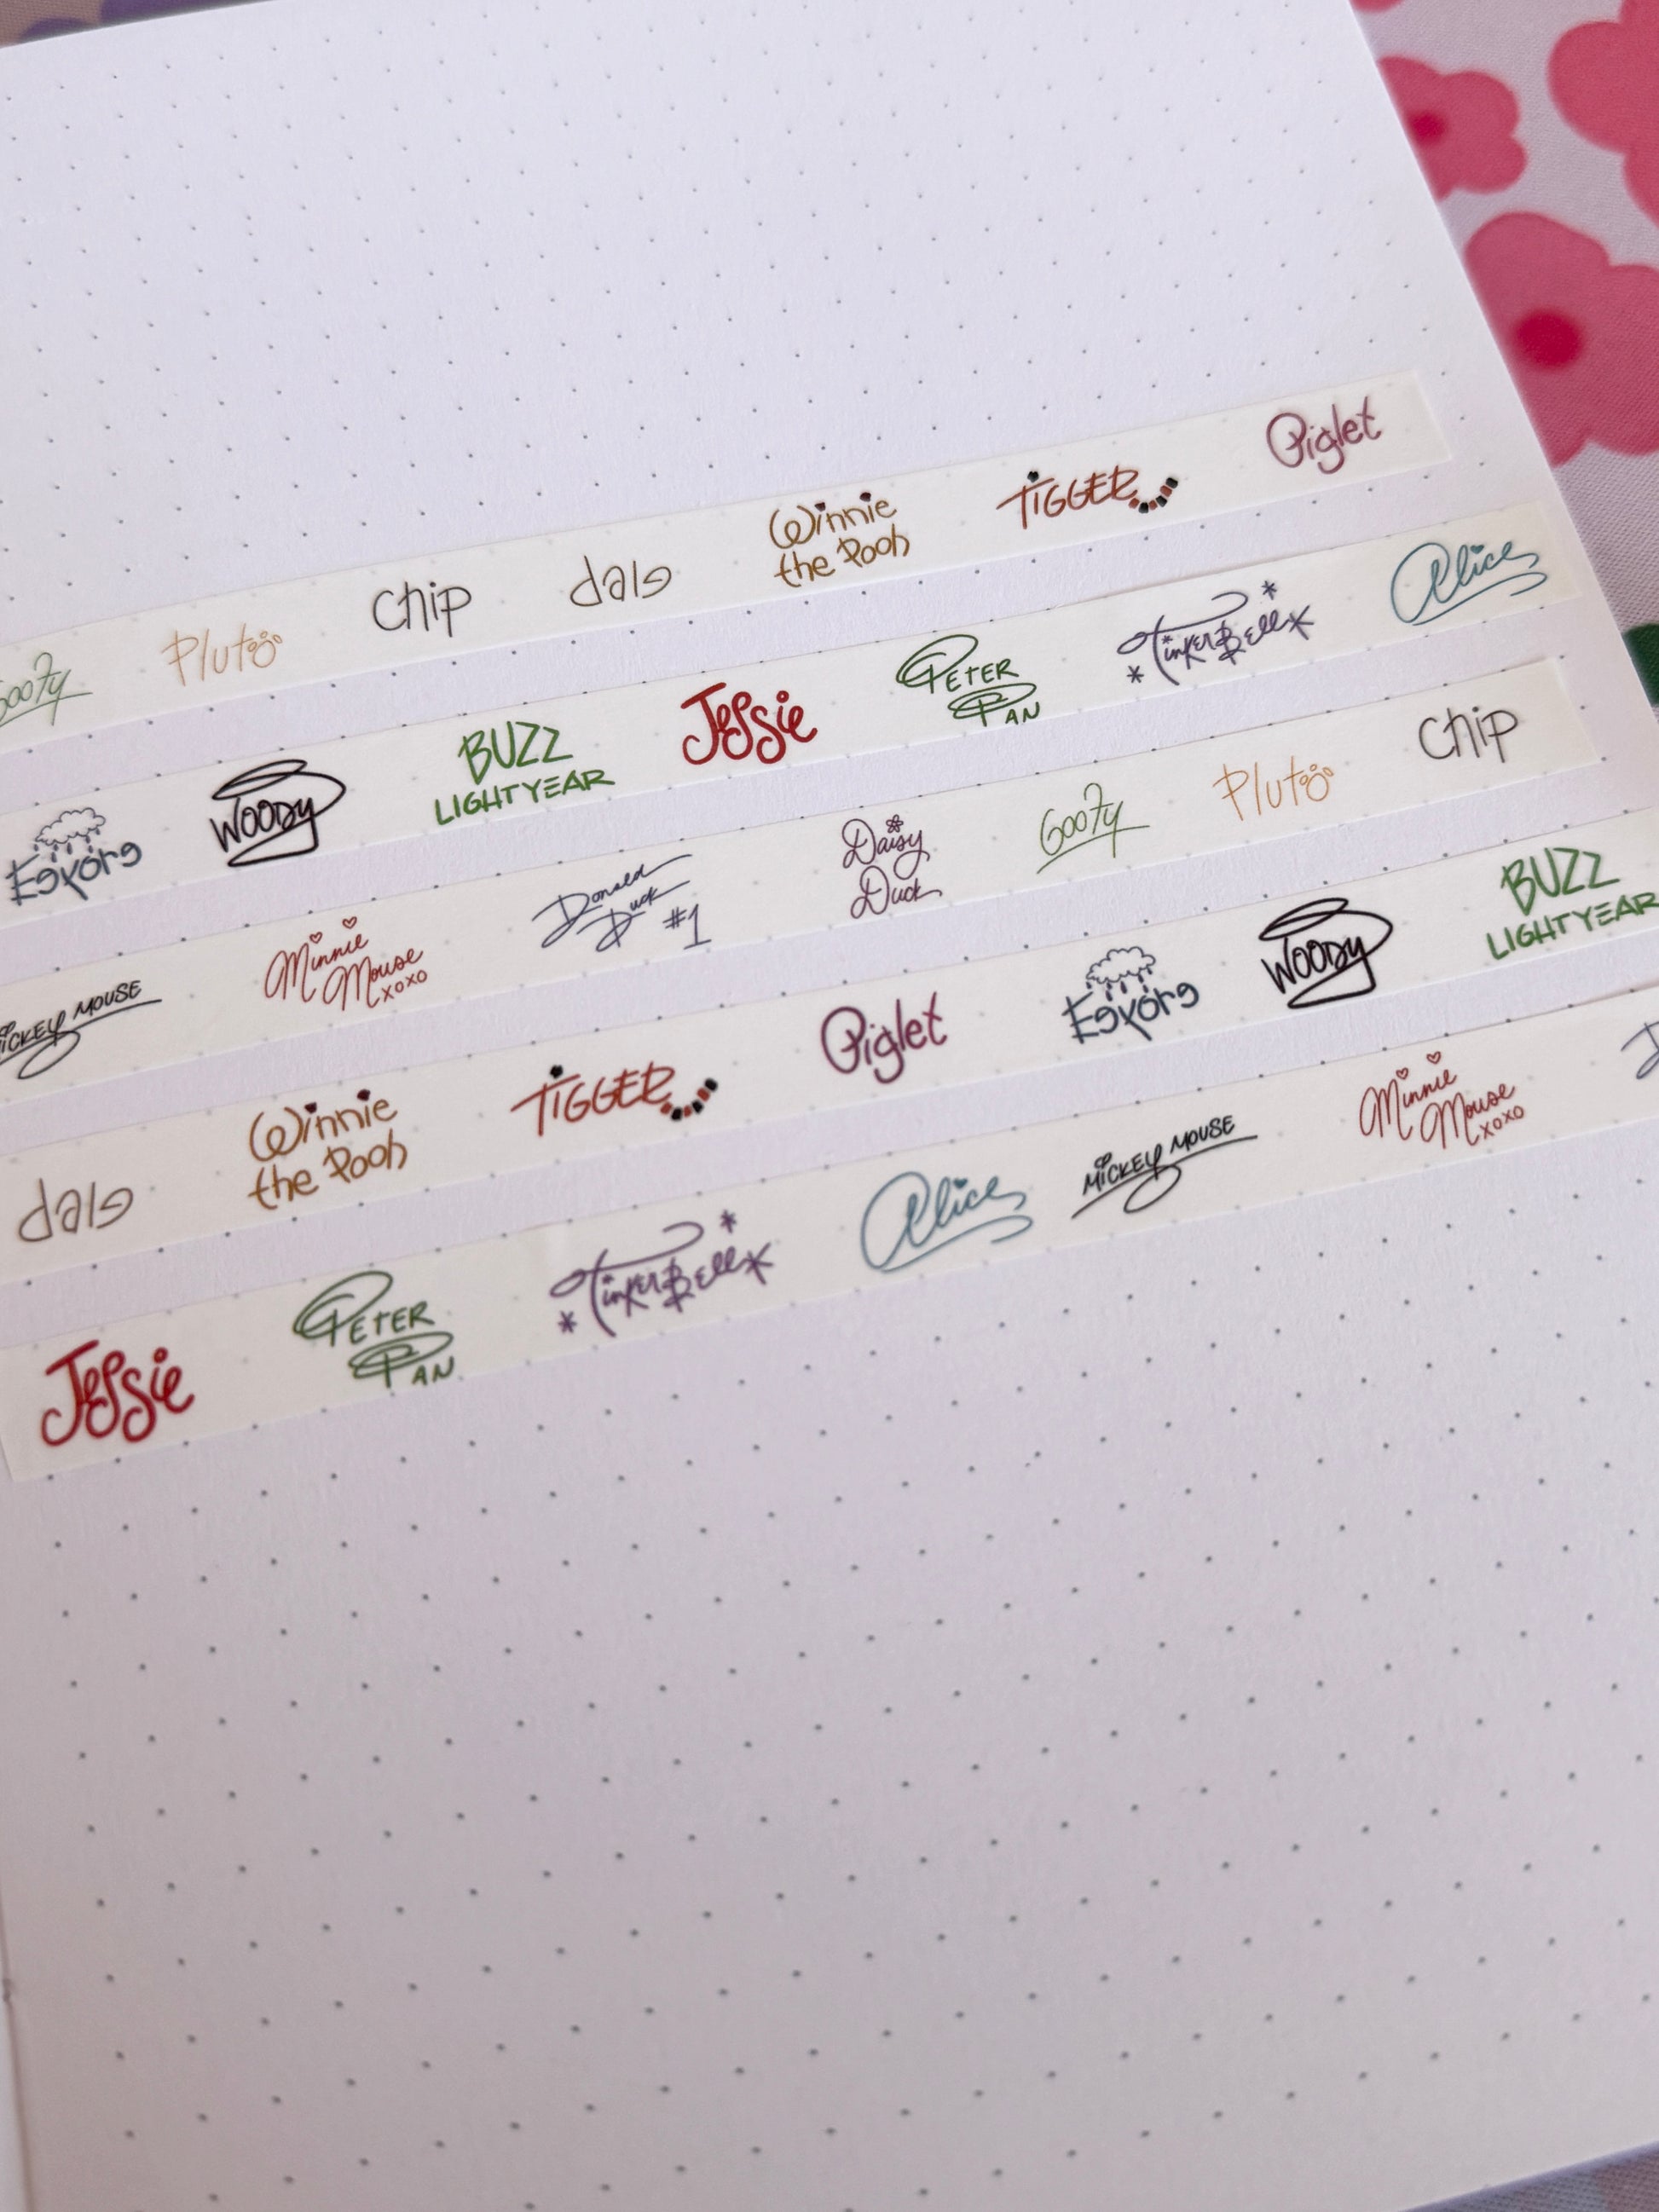 Goofy Pluto Chip dale Winnie the Pooh TIGGER Piglet
Eeyore WOODY BUZZ LIGHTYEAR Jessie PETER PAN TinkerBell Alice
MICKEY MOUSE Minnie Mouse xoxo Donald Duck #1 Daisy Duck Goofy Pluto Chip
dale Winnie the Pooh TIGGER Piglet Eeyore WOODY BUZZ LIGHTYEAR
Jessie PETER PAN TinkerBell Alice MICKEY MOUSE Minnie Mouse xoxo